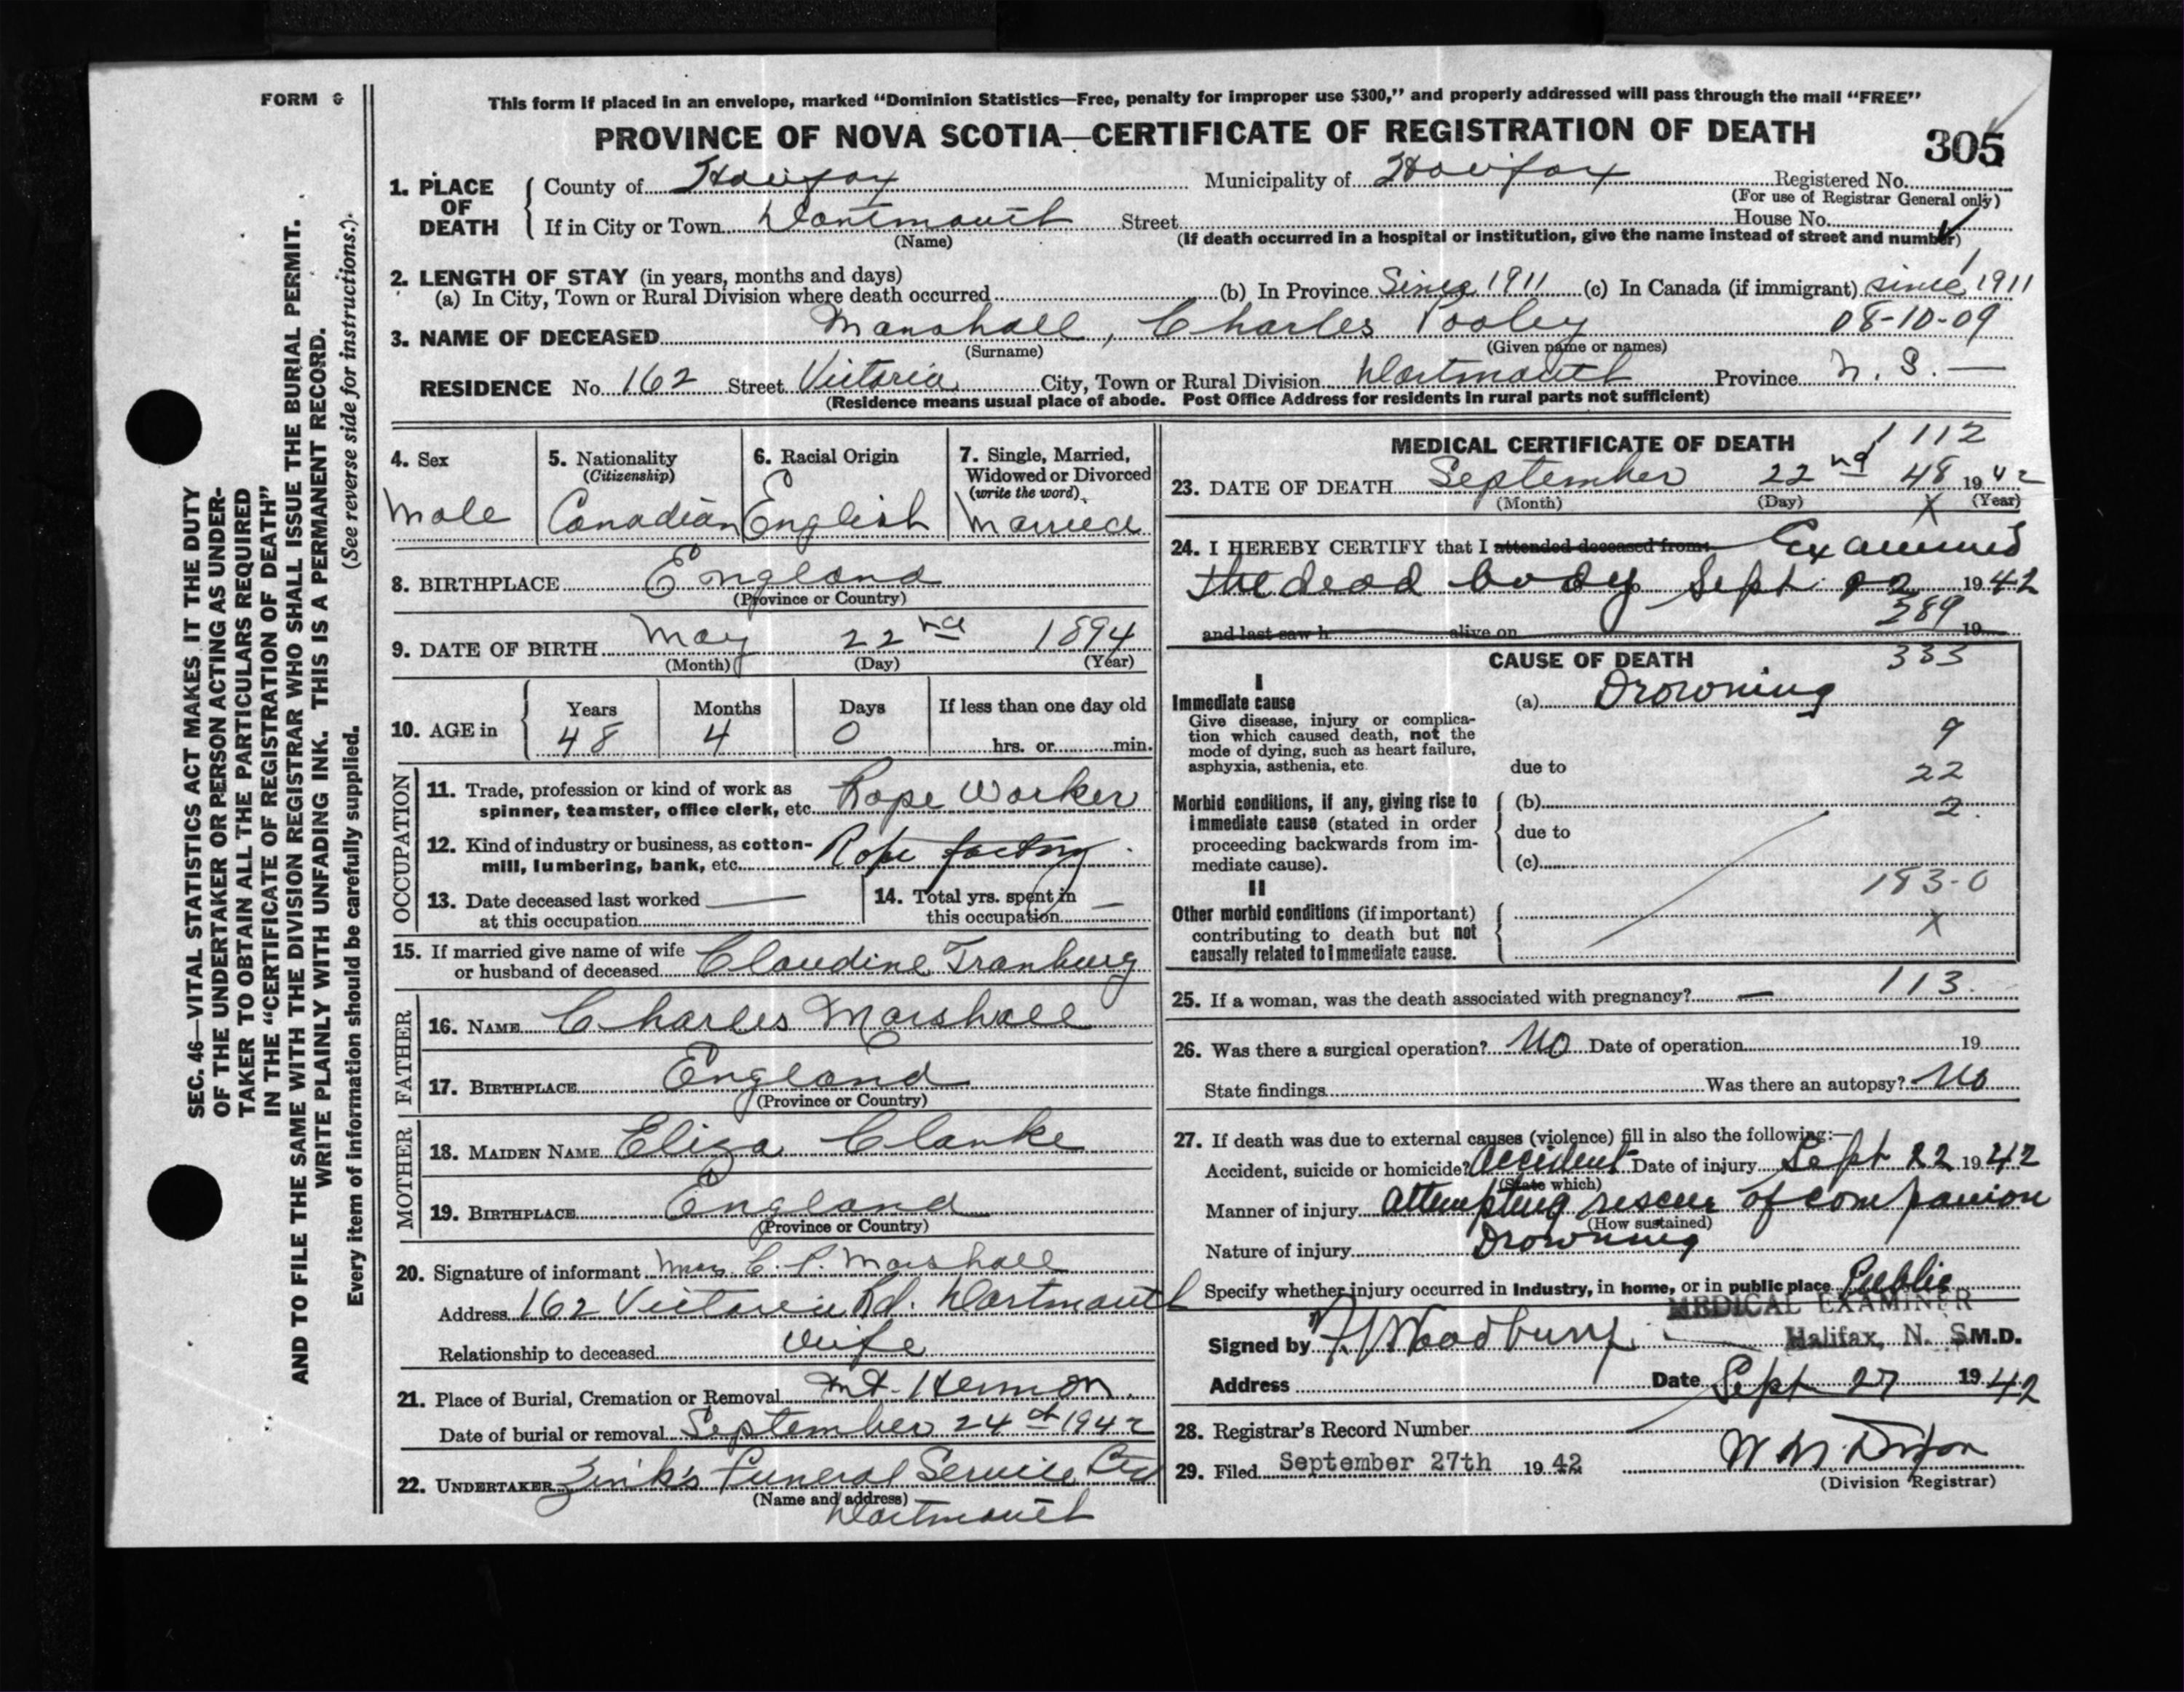 FORM 6
This form if placed in an envelope, marked “Dominion Statistics—Free, penalty for improper use $300,” and properly addressed will pass through the mail “FREE”
PROVINCE OF NOVA SCOTIA—CERTIFICATE OF REGISTRATION OF DEATH
305
1. PLACE OF DEATH
County of Halifax Municipality of Halifax Registered No.
(For use of Registrar General only)
If in City or Town Dartmouth Street House No.
(Name) (If death occurred in a hospital or institution, give the name instead of street and number)
2. LENGTH OF STAY (in years, months and days)
(a) In City, Town or Rural Division where death occurred (b) In Province Since 1911 (c) In Canada (if immigrant) since 1911
3. NAME OF DECEASED Marshall, Charles Pooley 08-10-09
(Surname) (Given name or names)
RESIDENCE No. 162 Street Victoria City, Town or Rural Division Dartmouth Province N. S. —
(Residence means usual place of abode. Post Office Address for residents in rural parts not sufficient)
4. Sex Male
5. Nationality (Citizenship) Canadian
6. Racial Origin English
7. Single, Married, Widowed or Divorced (write the word) Married
8. BIRTHPLACE England
(Province or Country)
9. DATE OF BIRTH May 22nd 1894
(Month) (Day) (Year)
10. AGE in Years 48 Months 4 Days 0 If less than one day old hrs. or min.
OCCUPATION
11. Trade, profession or kind of work as
spinner, teamster, office clerk, etc. Rope Worker
12. Kind of industry or business, as cotton-
mill, lumbering, bank, etc. Rope factory
13. Date deceased last worked —
at this occupation
14. Total yrs. spent in
this occupation —
15. If married give name of wife
or husband of deceased Claudine Tranburg
FATHER
16. NAME Charles Marshall
17. BIRTHPLACE England
(Province or Country)
MOTHER
18. MAIDEN NAME Eliza Clarke
19. BIRTHPLACE England
(Province or Country)
20. Signature of informant Mrs C. P. Marshall
Address 162 Victoria Rd. Dartmouth
Relationship to deceased Wife
21. Place of Burial, Cremation or Removal Mt. Hermon
Date of burial or removal September 24th 1942
22. UNDERTAKER Zink's Funeral Service Ltd
(Name and address)
Dartmouth
MEDICAL CERTIFICATE OF DEATH
1112
23. DATE OF DEATH September 22nd 48 1942
(Month) (Day) X (Year)
24. I HEREBY CERTIFY that I attended deceased from: Examined
the dead body Sept. 22 1942
289
and last saw h alive on 19
CAUSE OF DEATH 333
I
Immediate cause
Give disease, injury or complica-
tion which caused death, not the
mode of dying, such as heart failure,
asphyxia, asthenia, etc.
(a) Drowning
9
due to
22
Morbid conditions, if any, giving rise to
immediate cause (stated in order
proceeding backwards from im-
mediate cause).
(b)
2.
due to
(c)
183-0
II
Other morbid conditions (if important)
contributing to death but not
causally related to immediate cause.
X
25. If a woman, was the death associated with pregnancy? — 113
26. Was there a surgical operation? No Date of operation 19
State findings Was there an autopsy? No
27. If death was due to external causes (violence) fill in also the following:—
Accident, suicide or homicide? Accident Date of injury Sept 22 1942
(State which)
Manner of injury attempting rescue of companion
(How sustained)
Nature of injury Drowning
Specify whether injury occurred in industry, in home, or in public place Public
MEDICAL EXAMINER
Halifax, N. S.
Signed by Woodbury M.D.
Address Date Sept 27 1942
28. Registrar's Record Number
29. Filed September 27th 1942
(Division Registrar)
SEC. 46—VITAL STATISTICS ACT MAKES IT THE DUTY
OF THE UNDERTAKER OR PERSON ACTING AS UNDER-
TAKER TO OBTAIN ALL THE PARTICULARS REQUIRED
IN THE “CERTIFICATE OF REGISTRATION OF DEATH”
AND TO FILE THE SAME WITH THE DIVISION REGISTRAR WHO SHALL ISSUE THE BURIAL PERMIT.
WRITE PLAINLY WITH UNFADING INK. THIS IS A PERMANENT RECORD.
Every item of information should be carefully supplied. (See reverse side for instructions.)